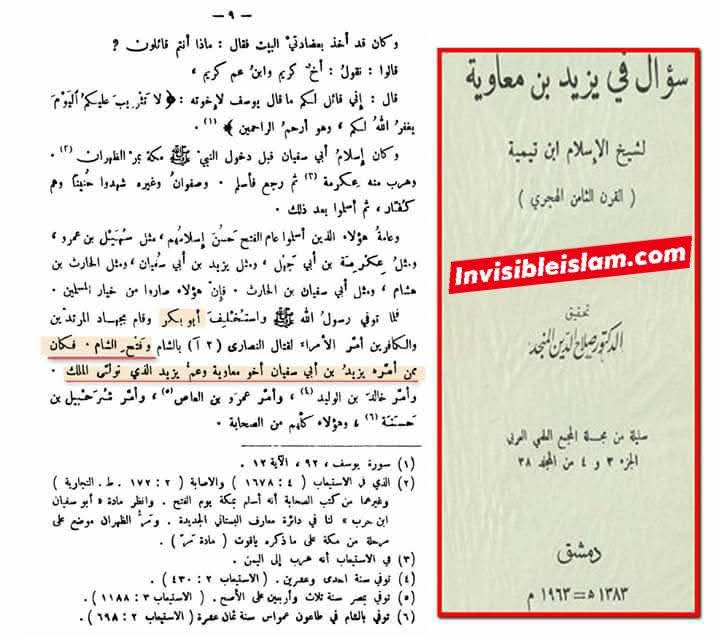 — ٩ —
وكان قد أخذ بعضادتي البيت فقال : ماذا أنتم قائلون ?
قالوا : نقول : أخ كريم وابن عم كريم ،
قال : إني قائل لكم ما قال يوسف لإخوته : ﴿ لا تثريب عليكم اليوم
يغفر الله لكم ، وهو أرحم الراحمين ﴾ (١) .
وكان إسلام أبي سفيان قبل دخول النبي ﷺ مكة بمر الظهران (٢) .
وهرب منه عكرمة (٣) ثم رجع فأسلم . وصفوان وغيره شهدوا حنينا وهم
كفار ، ثم أسلموا بعد ذلك .
وعامة هؤلاء الذين أسلموا عام الفتح حسن إسلامهم ، مثل سهيل بن عمرو ،
ومثل عكرمة بن أبي جهل ، ومثل يزيد بن أبي سفيان ، ومثل الحارث بن
هشام ، ومثل أبي سفيان بن الحارث . فإن هؤلاء صاروا من خيار المسلمين .
فلما توفي رسول الله ﷺ واستخلف أبو بكر وقام بجهاد المرتدين
والكافرين أمر الأمراء لقتال النصارى ( ٢ آ ) بالشام وفتح الشام . فكان
ممن أمره يزيد بن أبي سفيان أخو معاوية وعم يزيد الذي تولى الملك .
وأمر خالد بن الوليد (٤) ، وأمر عمرو بن العاص (٥) ، وأمر شرحبيل بن
حسنة (٦) ، وهؤلاء كلهم من الصحابة .
(١) سورة يوسف ، ٩٢ ، الآية ١٢ .
(٢) الذي في الاستيعاب ( ٤ : ١٦٧٨ ) والاصابة ( ٢ : ١٧٢ . ط . التجارية )
وغيرهما من كتب الصحابة أنه أسلم بمكة يوم الفتح . وانظر مادة « أبو سفيان
ابن حرب » لنا في دائرة معارف البستاني الجديدة . ومر الظهران موضع على
مرحلة من مكة على ما ذكره ياقوت ( مادة مر ) .
(٣) في الاستيعاب أنه هرب إلى اليمن .
(٤) توفي سنة احدى وعشرين . ( الاستيعاب ٢ : ٤٣٠ ) .
(٥) توفي بمصر سنة ثلاث وأربعين على الأصح . ( الاستيعاب ٣ : ١١٨٨ ) .
(٦) توفي بالشام في طاعون عمواس سنة ثمان عشرة ( الاستيعاب ٢ : ٦٩٨ ) .
سؤال في يزيد بن معاوية
لشيخ الإسلام ابن تيمية
( القرن الثامن الهجري )
Invisibleislam.com
تحقيق
الدكتور صلاح الدين المنجد
سليلة من مجلة المجمع العلمي العربي
الجزء ٣ و ٤ من المجلد ٣٨
دمشق
١٣٨٣ ه = ١٩٦٣ م